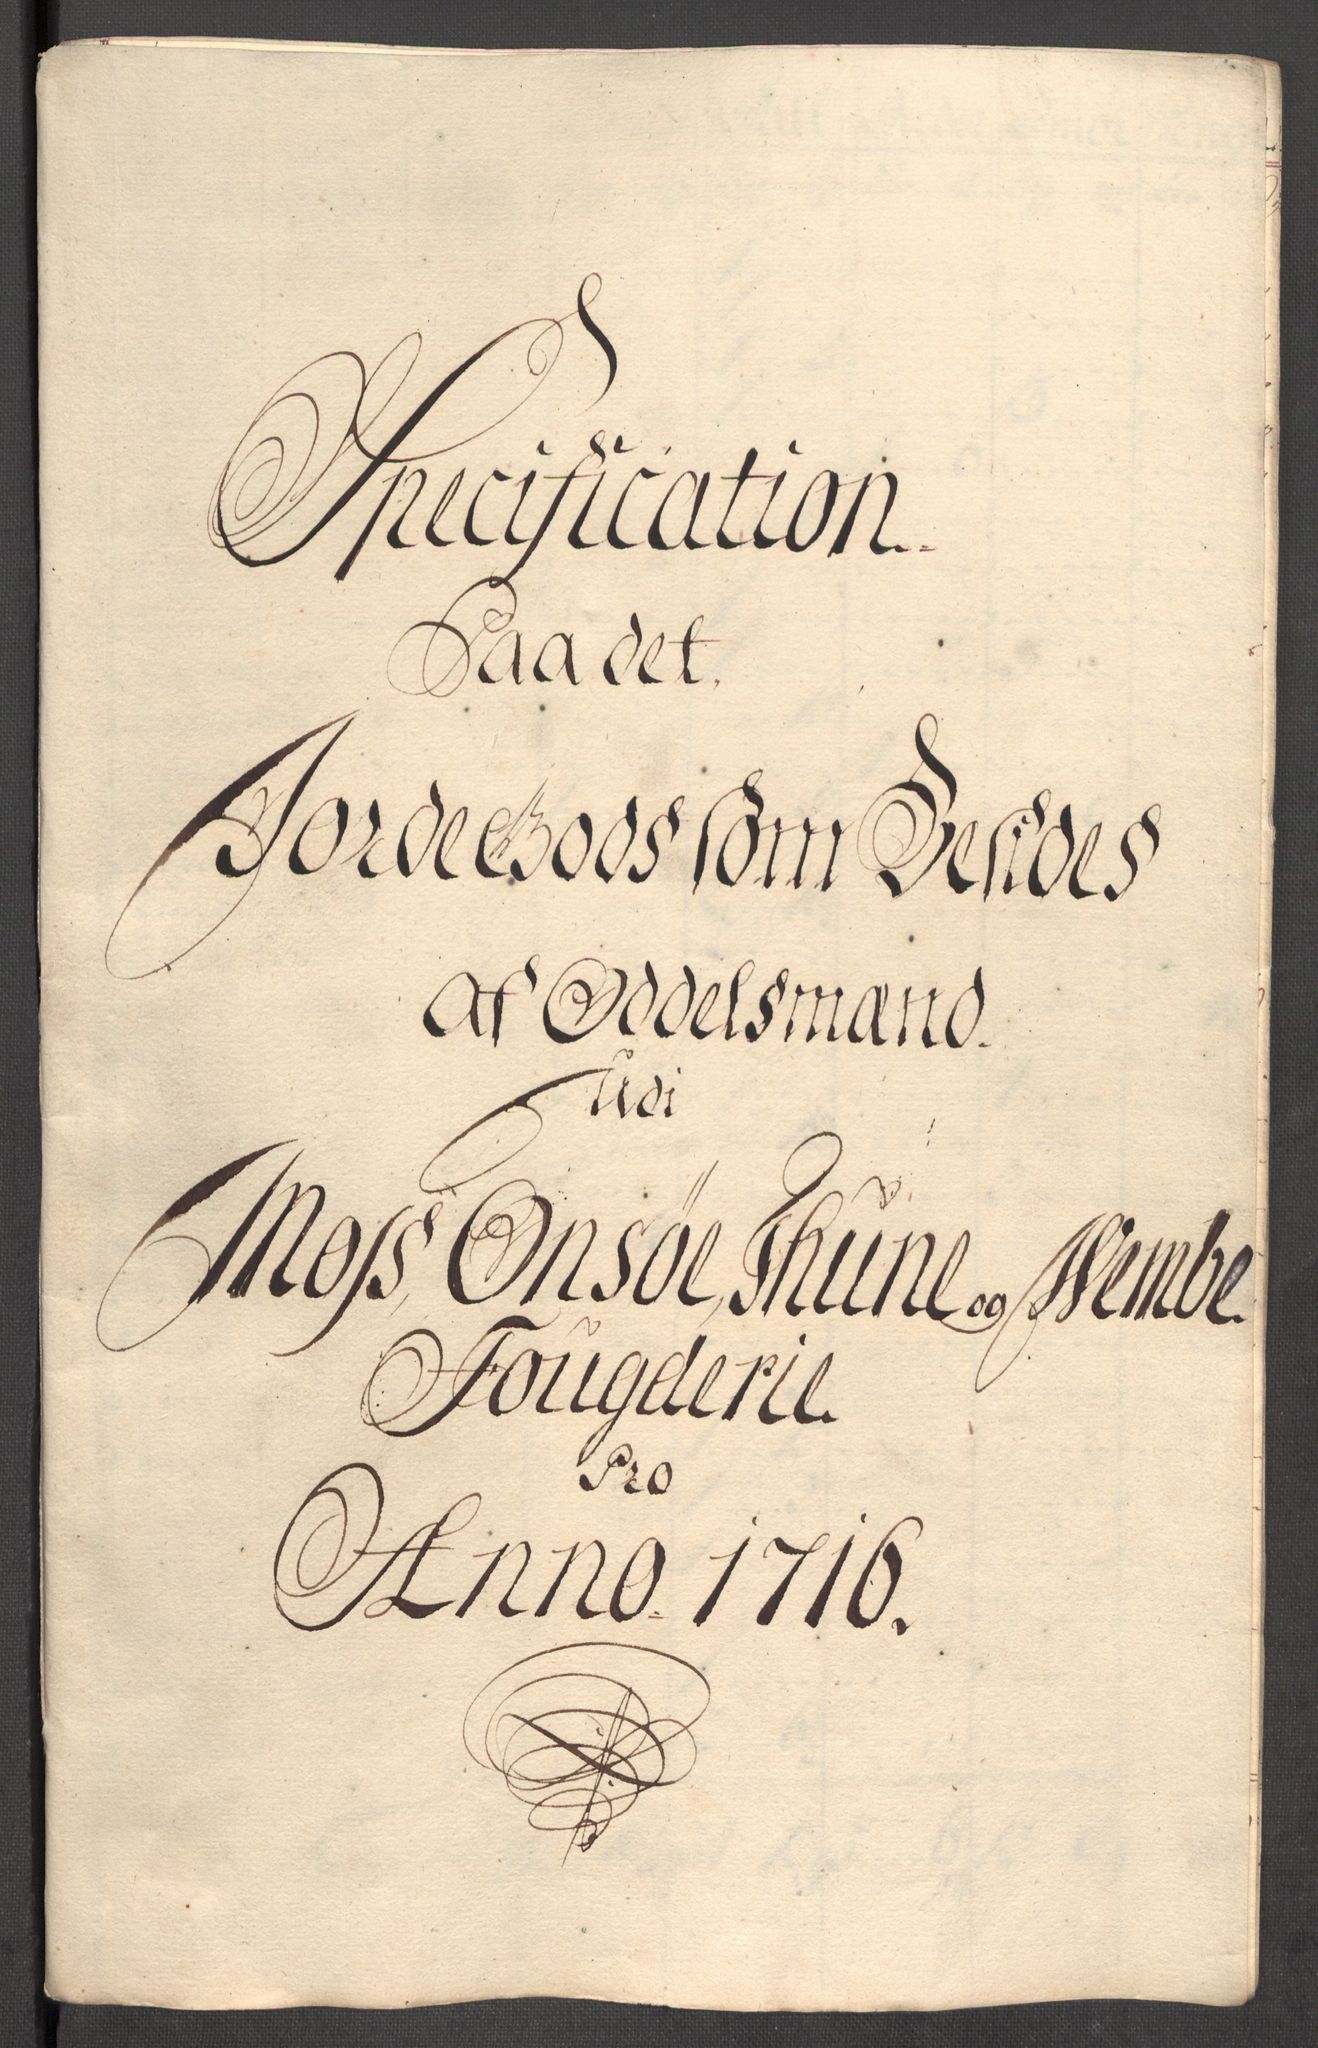 Specification
Paa det
Jordegods som Besides
af Oddelsmænd
Udi
Moss, Onsøe, Thune og Wembe
Fougderie
Pro
Anno 1716.